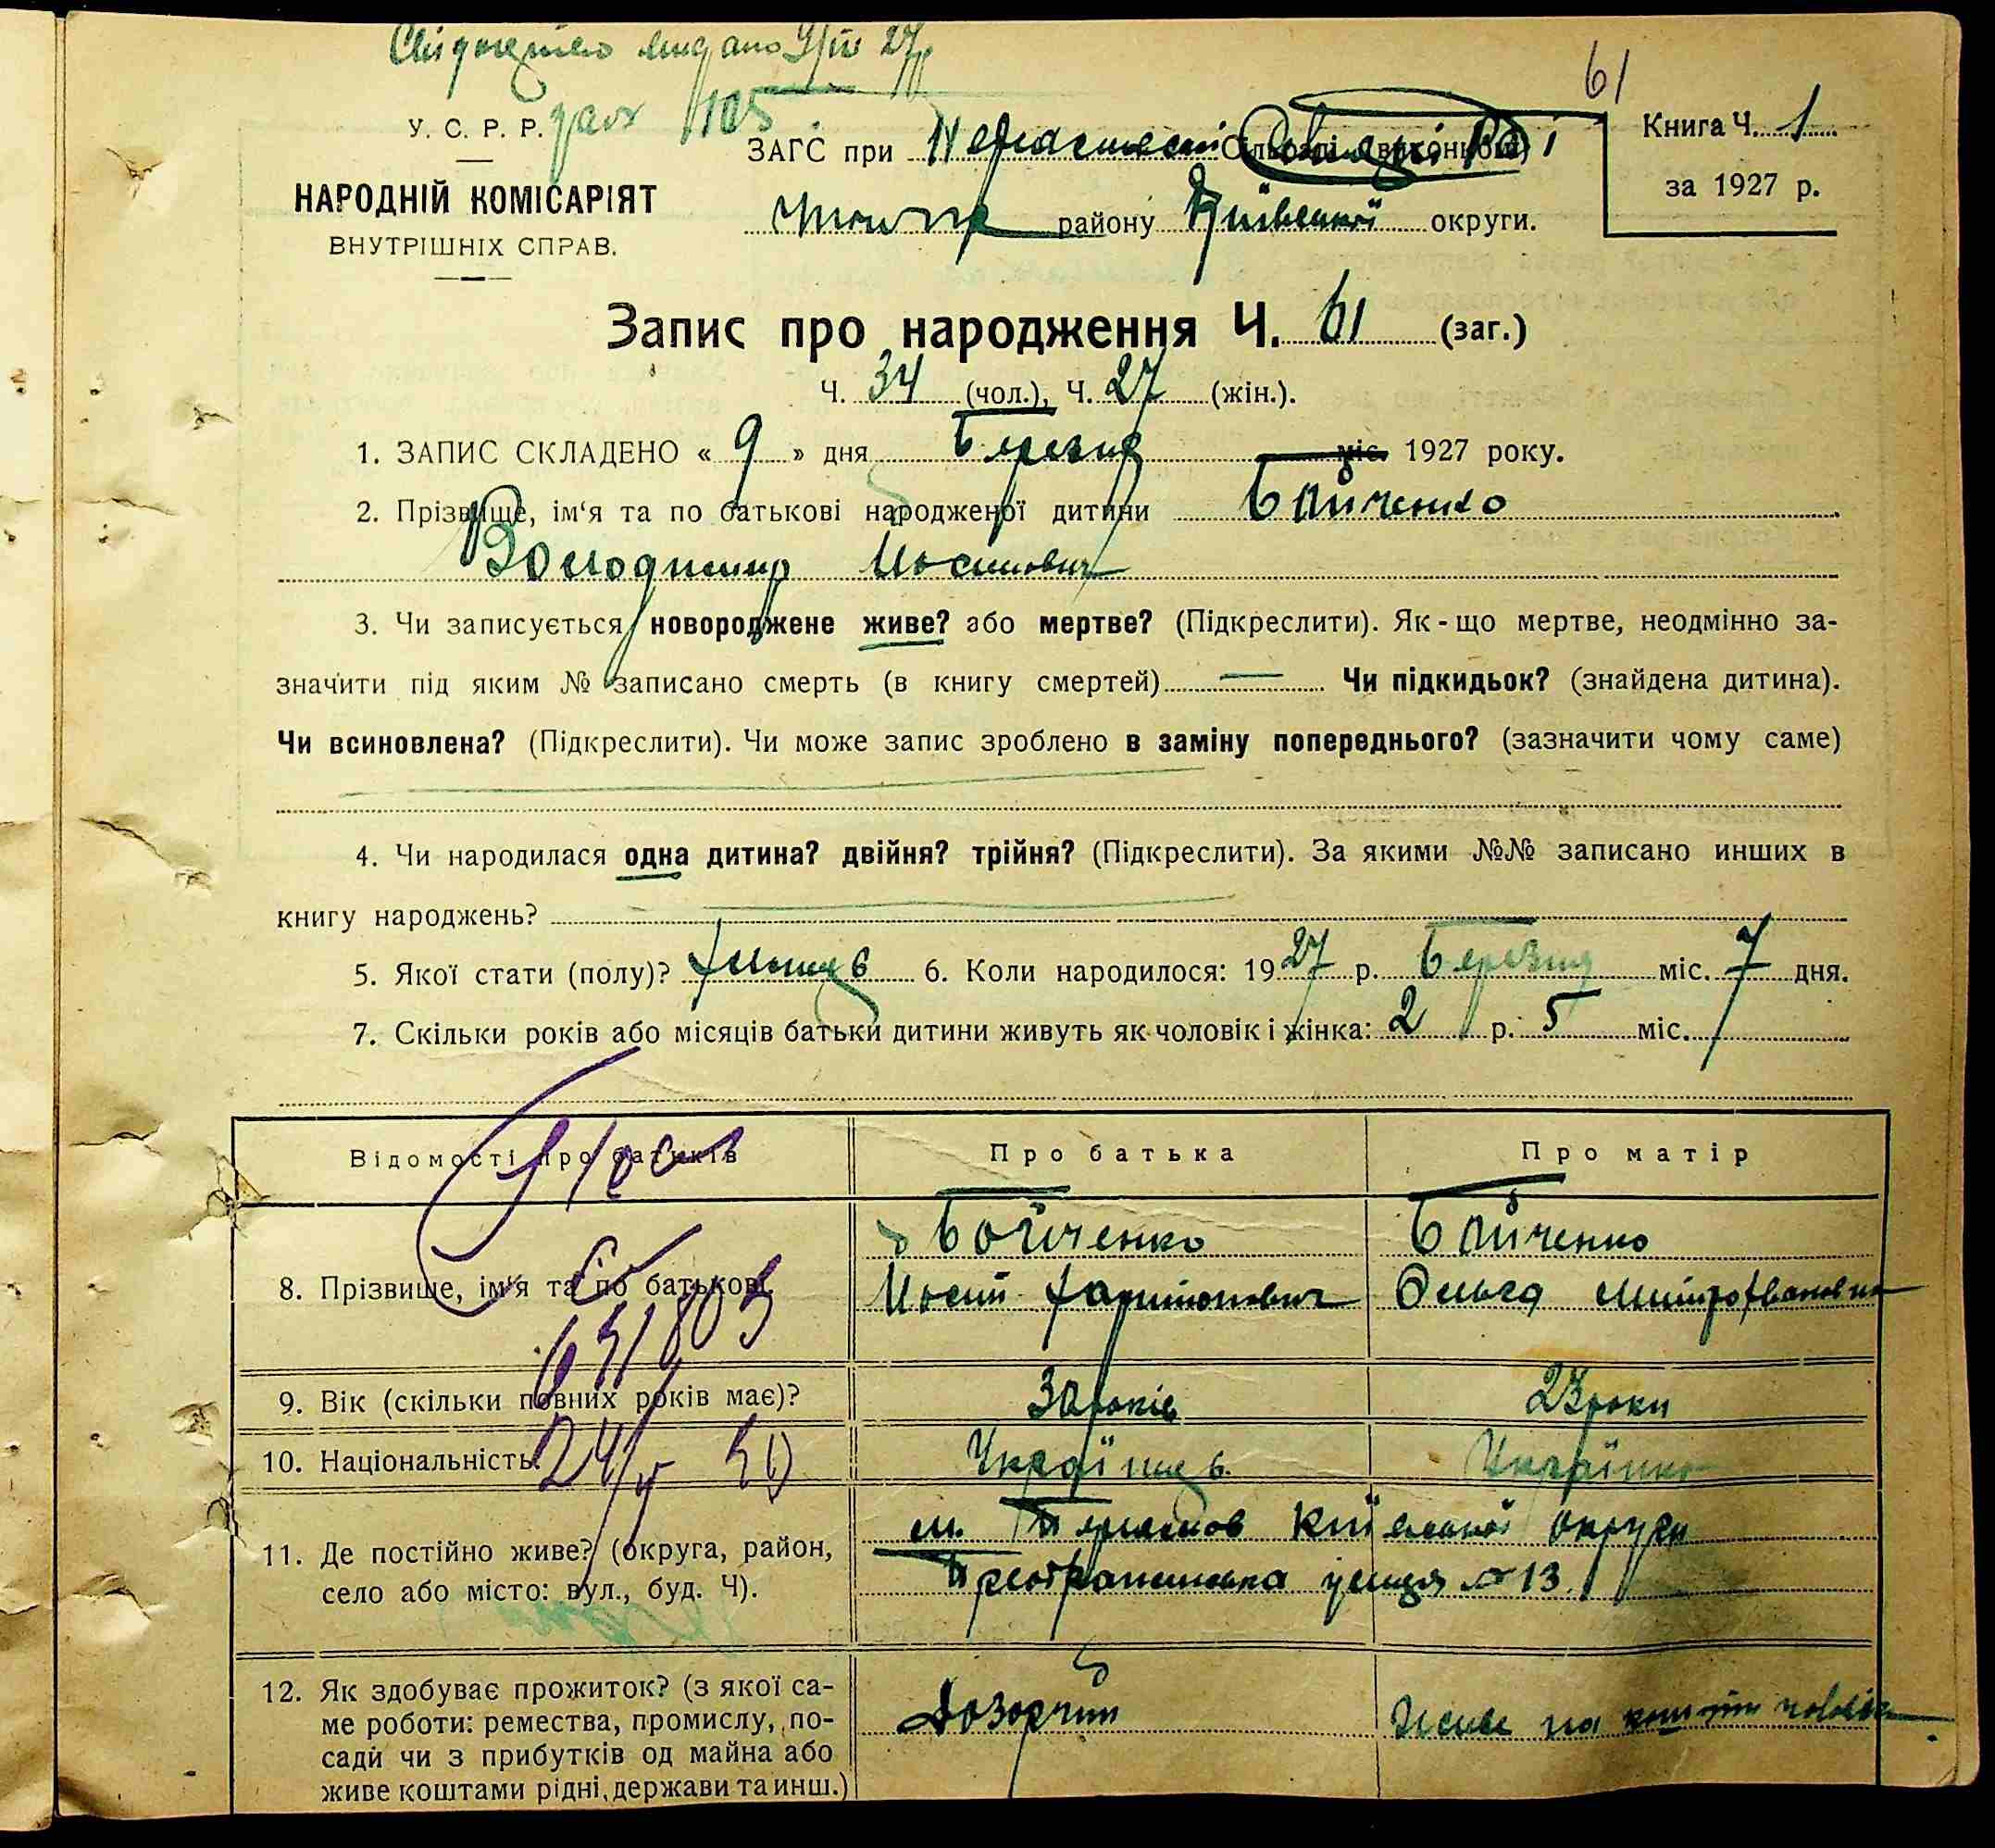 61
У. С. Р. Р.
105
Книга Ч. 1
ЗАГС при
за 1927 р.
НАРОДНІЙ КОМІСАРІЯТ
ВНУТРІШНІХ СПРАВ.
району Київської округи.
Запис про народження Ч. 61 (заг.)
Ч. 34 (чол.), Ч. 27 (жін.).
1. ЗАПИС СКЛАДЕНО « 9 » дня Березня міс. 1927 року.
2. Прізвище, ім‘я та по батькові народженої дитини Бойченко
Володимир Иосипович
3. Чи записується новороджене живе? або мертве? (Підкреслити). Як-що мертве, неодмінно за-
значити під яким № записано смерть (в книгу смертей) — Чи підкидьок? (знайдена дитина).
Чи всиновлена? (Підкреслити). Чи може запис зроблено в заміну попереднього? (зазначити чому саме)
4. Чи народилася одна дитина? двійня? трійня? (Підкреслити). За якими №№ записано инших в
книгу народжень?
5. Якої стати (полу)? 6. Коли народилося: 1927 р. Березня міс. 7 дня.
7. Скільки років або місяців батьки дитини живуть як чоловік і жінка: 2 р. 5 міс.
Відомості про батьків
Про батька
Про матір
8. Прізвище, ім‘я та по батькові.
Бойченко
Иосип Харитонович
Бойченко
Ольга Митрофановна
9. Вік (скільки повних років має)?
30 років
23 роки
10. Національність.
Українець
Українка
11. Де постійно живе? (округа, район,
село або місто: вул., буд. Ч).
Київської округи
Преображенська улиця № 13
12. Як здобуває прожиток? (з якої са-
ме роботи: ремества, промислу, по-
сади чи з прибутків од майна або
живе коштами рідні, держави та инш.)
Дозорчий
Живе на кошти чоловіка